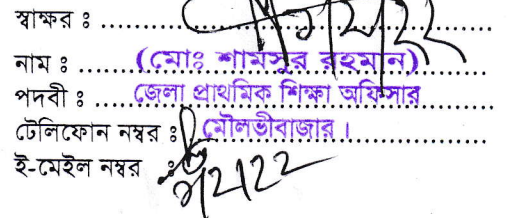 স্বাক্ষর ঃ ........................................
নাম ঃ .....(মোঃ শামসুর রহমান).....
পদবী ঃ .....জেলা প্রাথমিক শিক্ষা অফিসার.....
টেলিফোন নম্বর ঃ মৌলভীবাজার।.....
ই-মেইল নম্বর ঃ